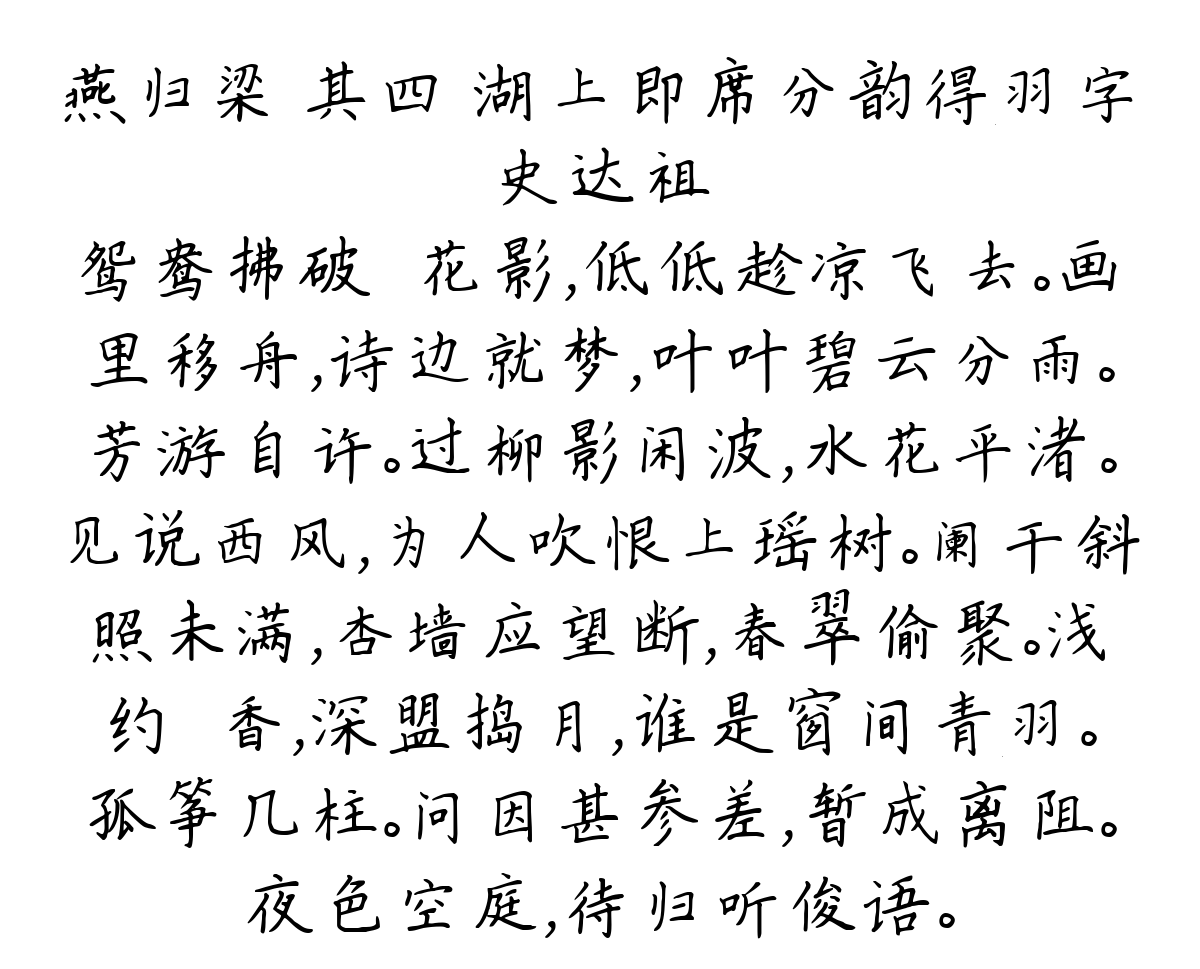 燕归梁 其四 湖上即席分韵得羽字
史达祖
鸳鸯拂破 花影,低低趁凉飞去。画
里移舟,诗边就梦,叶叶碧云分雨。
芳游自许。过柳影闲波,水花平渚。
见说西风,为人吹恨上瑶树。阑干斜
照未满,杏墙应望断,春翠偷聚。浅
约 香,深盟捣月,谁是窗间青羽。
孤筝几柱。问因甚参差,暂成离阻。
夜色空庭,待归听俊语。